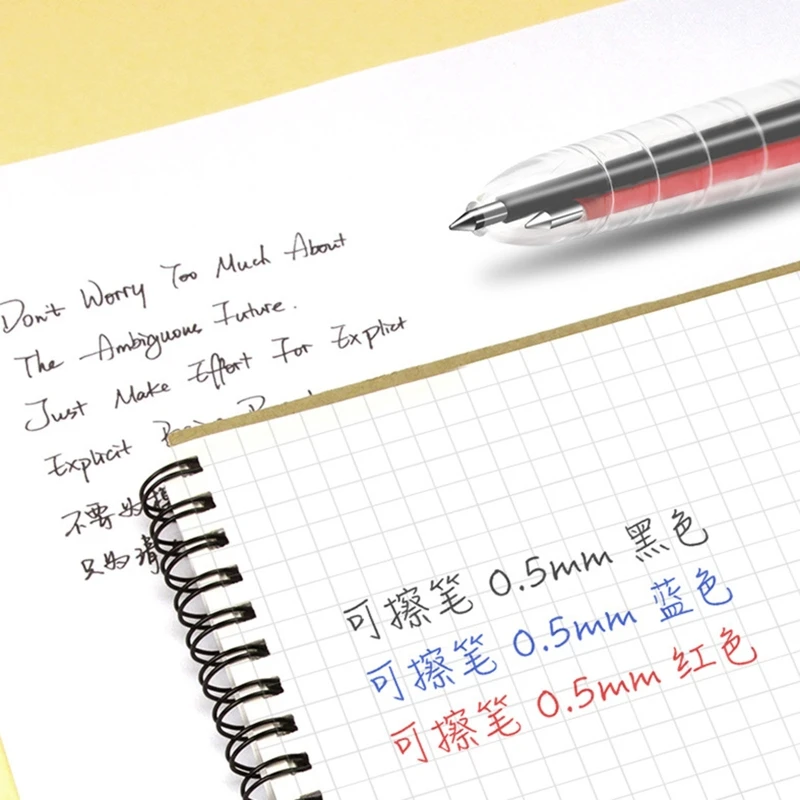 Don't Worry Too Much About
The Ambiguous Future.
Just Make Effort For Explict
Explicit
不要为
只为清
可擦笔 0.5mm 黑色
可擦笔 0.5mm 蓝色
可擦笔 0.5mm 红色